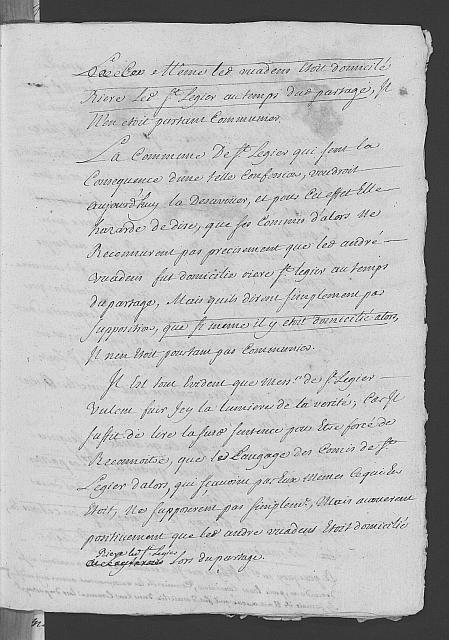 même led vuadens Etoit domicilié
Riere Led st. Legier au temps dud. partage, Il
N'en etoit partant Communier.
La Commune De st. Legier qui sent la
Consequence d'une telle Confession, voudroit
aujourd'huy la Desavouer, et pour Cet effet Elle
hazarde de dire, que ses Commis d'alors Ne
Reconnurent pas precisement que led. andré
vuadens fut domicilié riere st. legier au temps
du partage, Mais qu'ils dirent simplement par
supposition, que si meme il y etoit domicilié alors,
Il n'en Etoit pourtant pas Communier.
Il Est tout Evident que Mess.rs de st. Legier
Veulent fuir Icy la lumiere de la verité, Car Il
suffit de lire la sentence pour Etre forcé de
Reconnoitre, que le Langage des Comis de st.
Legier d'alors, qui par Eux Memes Ce qui En
Etoit, Ne supposerent pas simplem.t, Mais avouerent
positivement que led. andre vuadens Etoit domicilié
Riere led. st. Legier
Lors du partage.